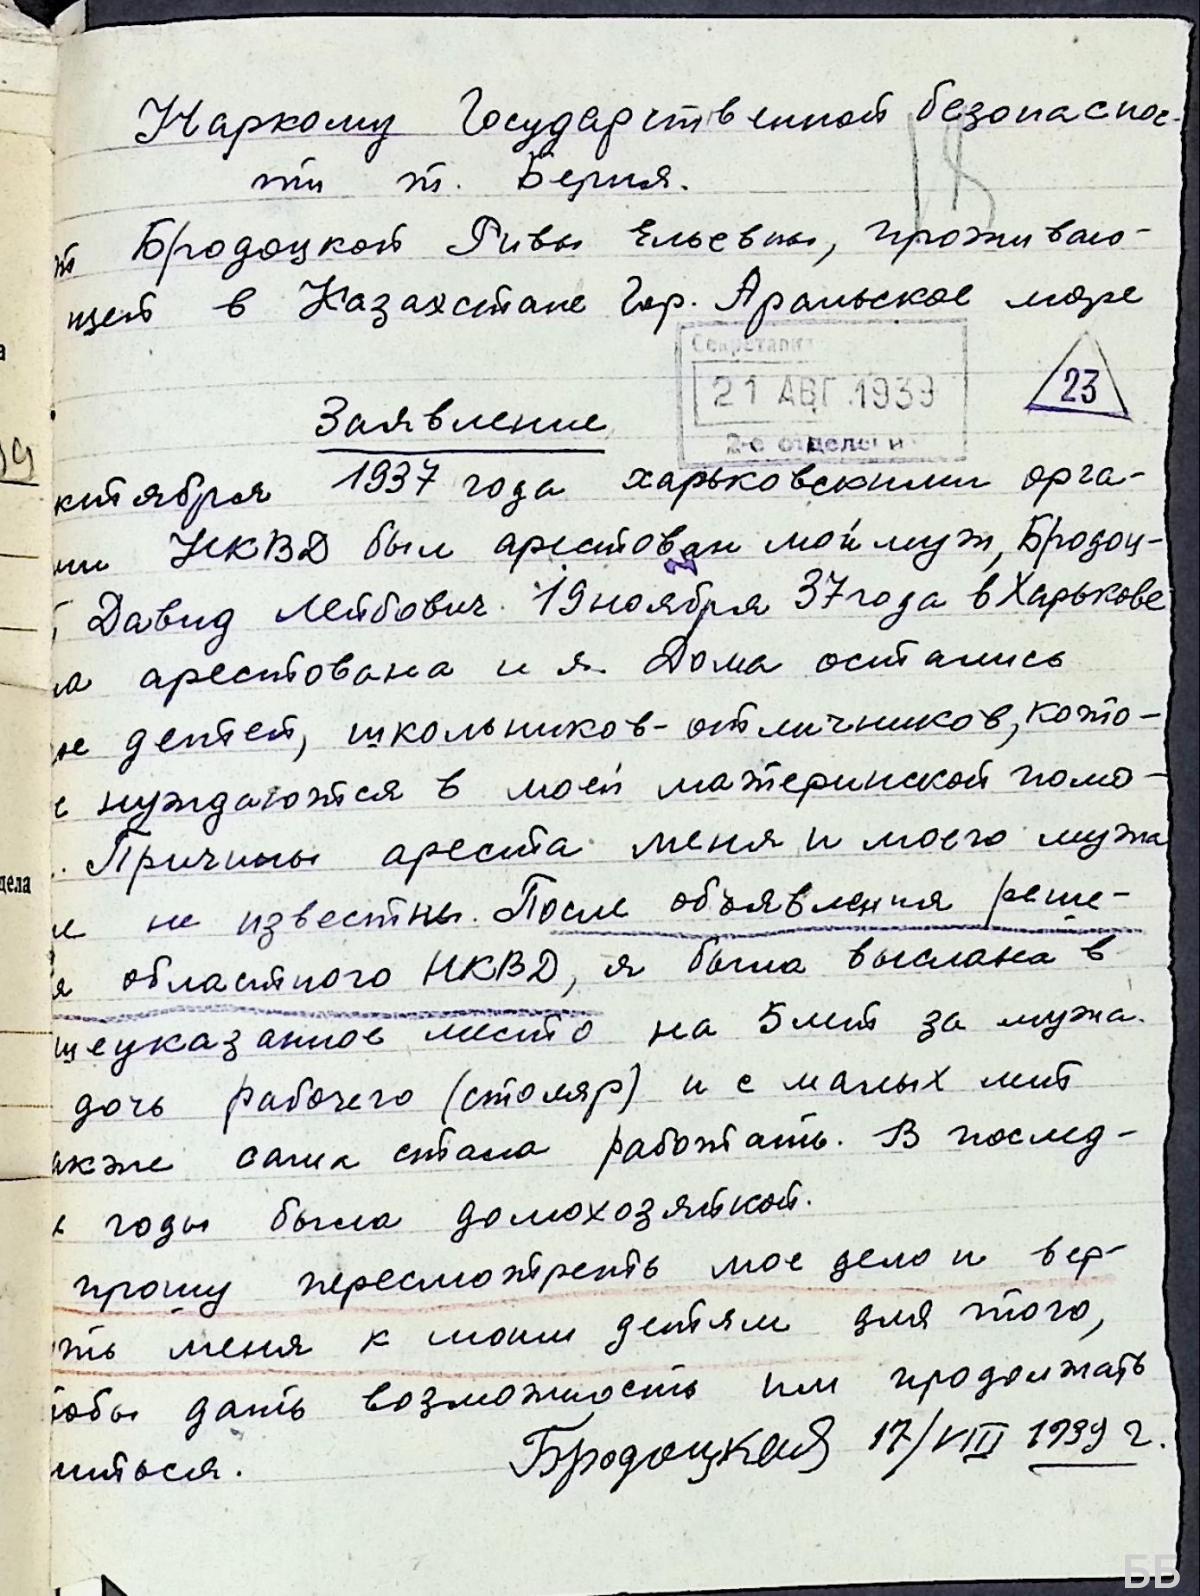 Наркому Государственной безопаснос-
ти т. Берия.
т Бродоцкой Ривы Ельевны, проживаю-
щей в Казахстане Гор. Аральское море
Секретариат
21 АВГ.1939
2-е отделени
23
Заявление
ктября 1937 года харьковскими орга-
ми НКВД был арестован мой муж, Бродоц-
й Давид Лейбович. 19 ноября 37 года в Харькове
ла арестована и я. Дома остались
ое детей, школьников-отличников, кото-
е нуждаются в моей материнской помо-
. Причины ареста меня и моего мужа
не известны. После объявления реше-
я областного НКВД, я была выслана в
щеуказанное место на 5 лет за мужа.
дочь рабочего (столяр) и с малых лет
акже сама стала работать. В послед-
х годы была домохозяйкой.
прошу пересмотреть мое дело и вер-
ть меня к моим детям для того,
тобы дать возможность им продолжать
читься. Бродоцкая 17/VIII 1939 г.
дела
ББ